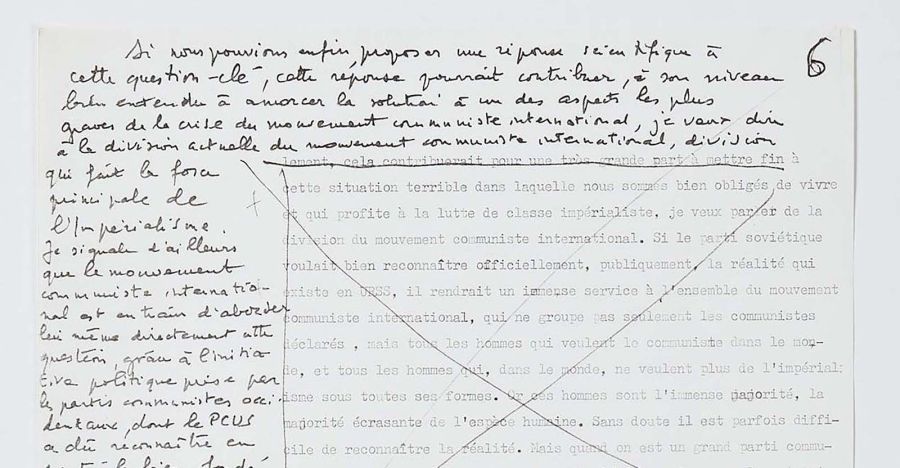 6
Si nous pouvions enfin, proposer une réponse scientifique à
cette question-clé, cette réponse pourrait contribuer, à son niveau
bien entendu à amorcer la solution à un des aspects les plus
graves de la crise du mouvement communiste international, je veux dire
à la division actuelle du mouvement communiste international, division
qui fait la force
principale de
l'Impérialisme.
Je signale d'ailleurs
que le mouvement
communiste internatio-
nal est en train d'aborder
lui même directement cette
question, grâce à l'initia
tive politique prise par
les partis communistes occi
dentaux, dont le PCUS
a dû reconnaître en
lement, cela contribuerait pour une très grande part à mettre fin à
cette situation terrible dans laquelle nous sommes bien obligés de vivre
et qui profite à la lutte de classe impérialiste, je veux parler de la
division du mouvement communiste international. Si le parti soviétique
voulait bien reconnaître officiellement, publiquement, la réalité qui
existe en URSS, il rendrait un immense service à l'ensemble du mouvement
communiste international, qui ne groupe pas seulement les communistes
déclarés , mais tous les hommes qui veulent le communiste dans le mon-
de, et tous les hommes qui, dans le monde, ne veulent plus de l'impérial;
isme sous toutes ses formes. Or ces hommes sont l'immense majorité, la
majorité écrasante de l'espèce humaine. Sans doute il est parfois diffi-
cile de reconnaître la réalité. Mais quand on est un grand parti commu-